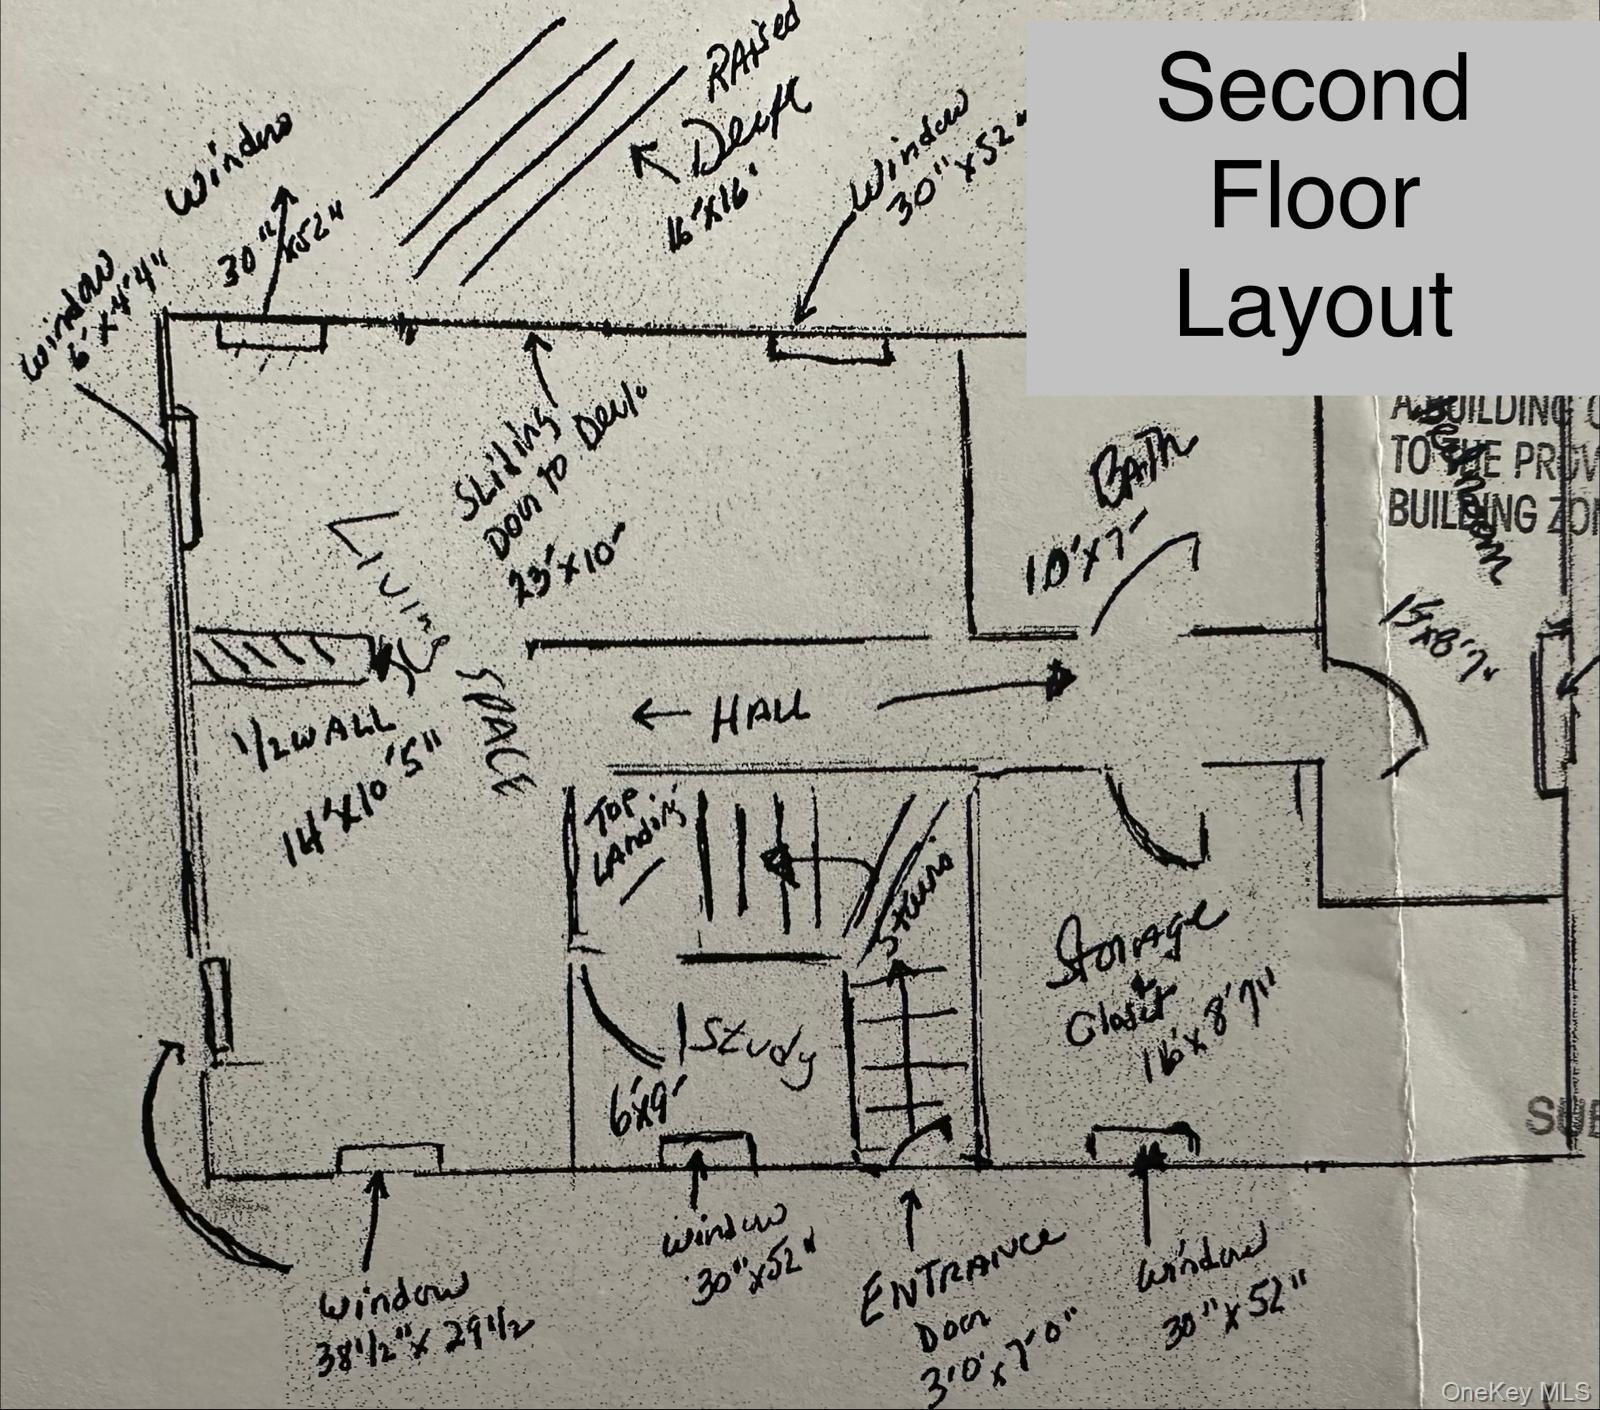 Second
Floor
Layout
RAised
Deck
16'X16'
Window
30" x 52"
Window
30" x52"
Window
6' x 4'4"
Sliding
Door to Deck
23' x 10'
LIVING
SPACE
1/2 WALL
14' x 10'5"
BATH
10' x 7'
A BUILDING
TO THE PROV
BUILDING ZON
Bedroom
15x8'7"
HALL
TOP
LANding
Stairs
Study
6'x9'
Storage
&
Closet
16' x 8'7"
SUB
Window
38 1/2" x 29 1/2
Window
30" x52"
ENTRANCE
Door
3'0" x 7'0"
Window
30" x 52"
OneKey MLS